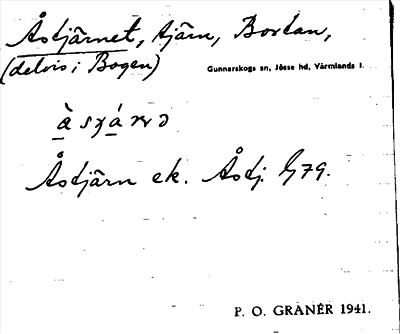 Åstjärnet, tjärn, Bortan,
(delvis i Bogen)
Gunnarskogs sn, Jösse hd, Värmlands l.
Åstjärn ek. Åstj. G79.
P. O. GRANÉR 1941.